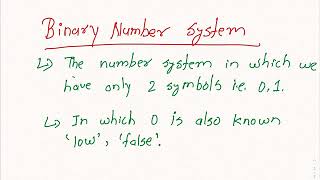 Binary Number system
↳ The number system in which we
have only 2 symbols i.e. 0,1.
↳ In which 0 is also known
'low', 'false'.